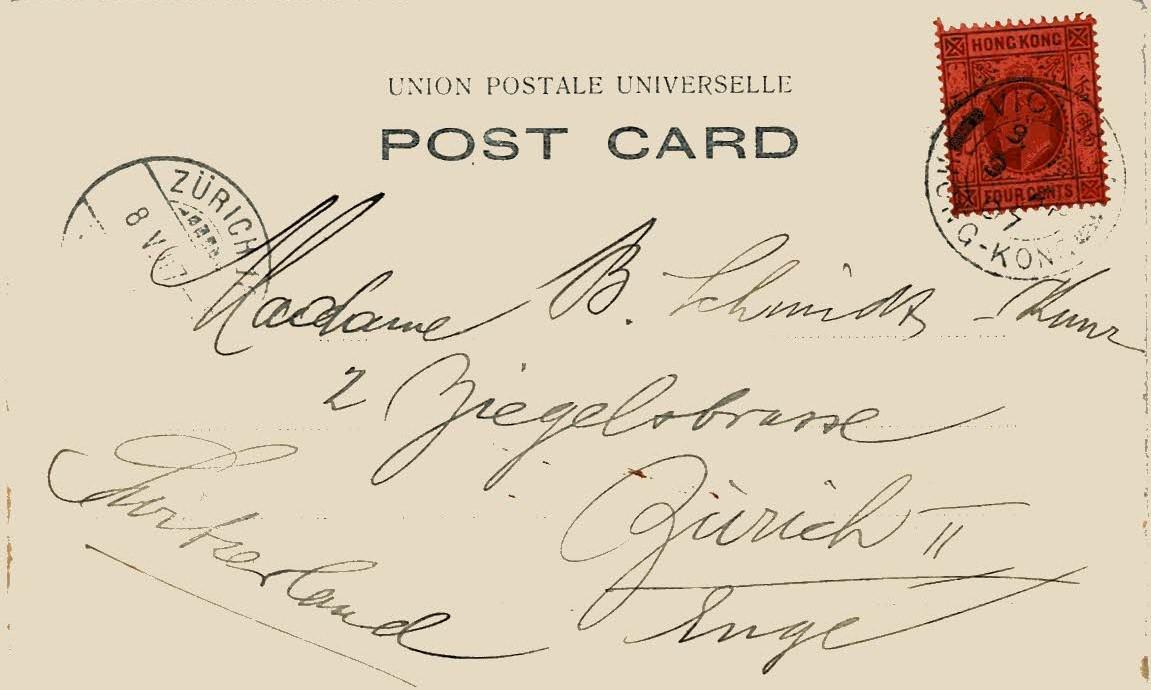 UNION POSTALE UNIVERSELLE
POST CARD
HONG KONG
FOUR CENTS
VIC
HONG-KONG
ZÜRICH
8 V. 07
Madame B. Schmidt-Kunz
2 Ziegelstrasse
Zürich II
Enge
Switzerland